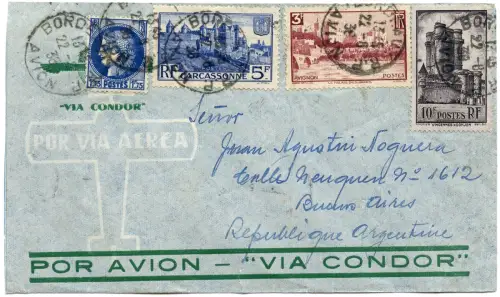 BORDEAUX
AVION
1,75 POSTES 1,75
RF CARCASSONNE 5F
3F
AVIGNON POSTES
10F POSTES RF
VINCENNES-DONJON
"VIA CONDOR"
POR VIA AEREA
Señor
Juan Agustin Noguera
Calle Neuquen Nº 1612
Buenos Aires
Republique Argentine
POR AVION - "VIA CONDOR"